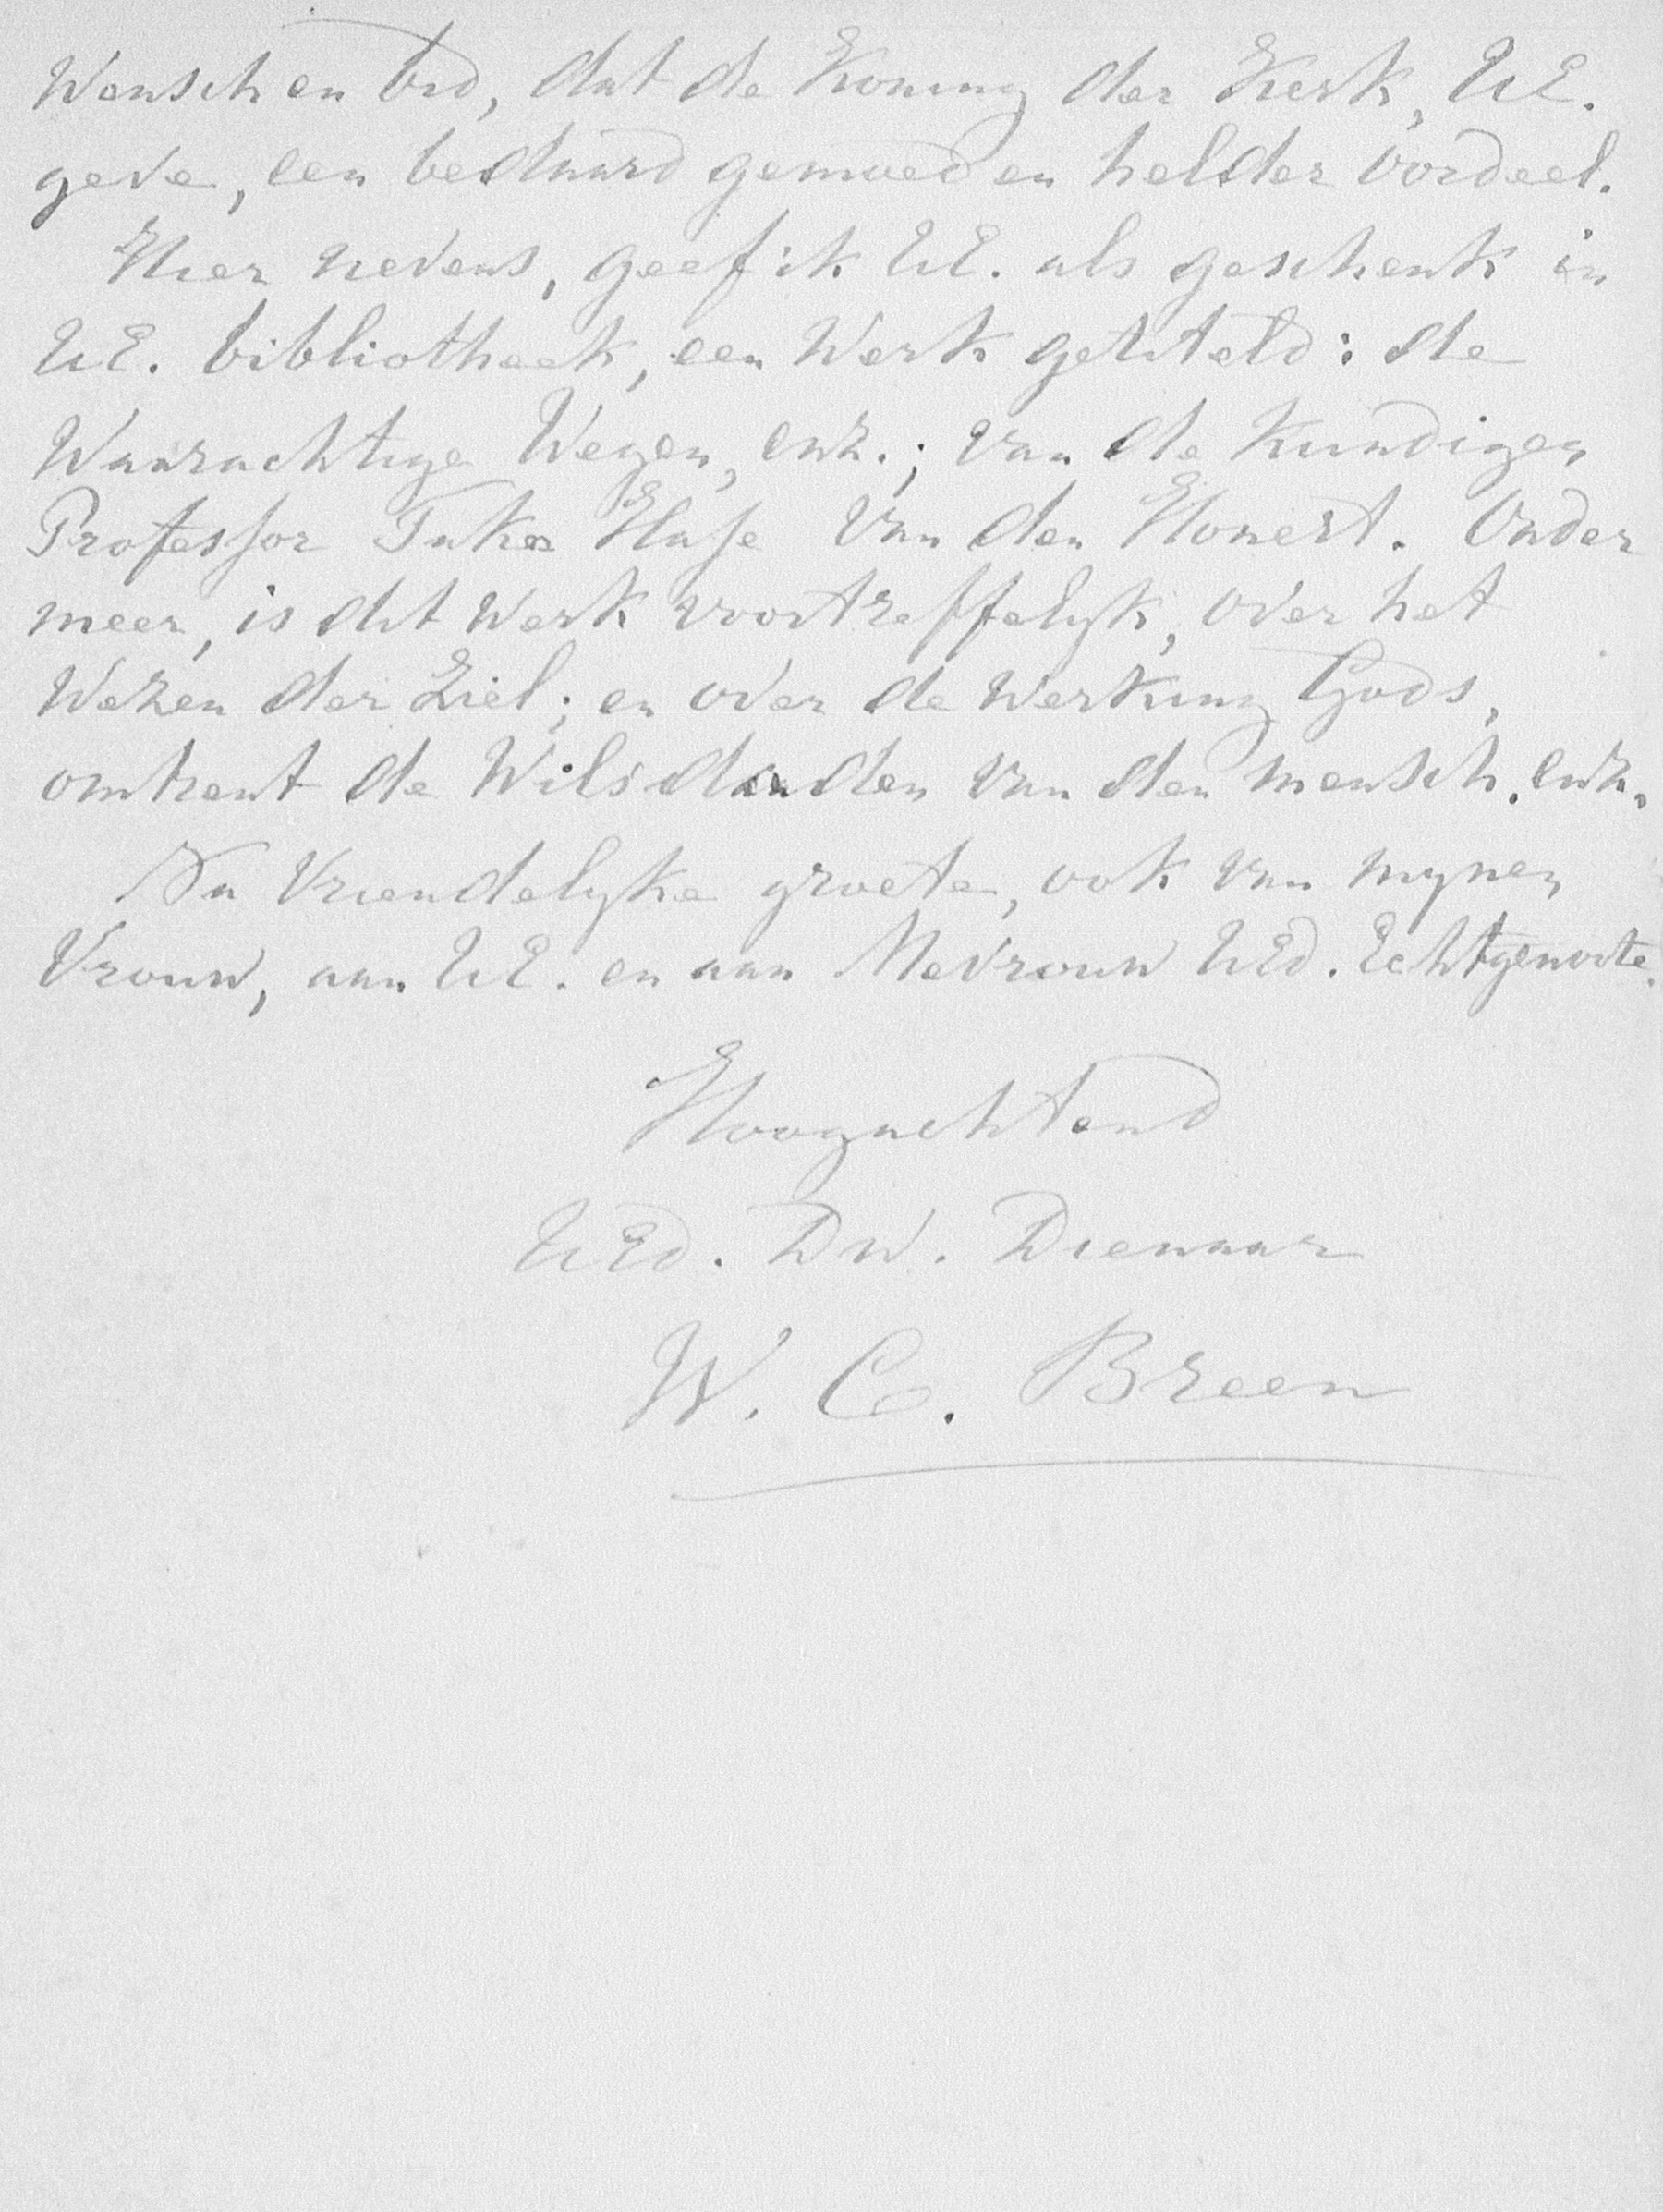 Wensch en bid, dat de Koning der Kerk, UE.
geve, een bedaard gemoed en helder oordeel.
Hier nevens, geef ik UE. als geschenk in
UE. bibliotheek, een Werk getiteld: de
Waarachtige Wegen, enz.; van de Kundigen
Professor Take Hase van den Honert. Onder
meer, is dit Werk voortreffelyk, over het
Wezen der Ziel; en over de werking Gods,
omtrent de Wilsdaden van den mensch. enz.
Na Vriendelyke groete, ook van mynen
Vrouw, aan UE. en aan Mevrouw UEd. Echtgenoote.
Hoogachtend
UEd. DW. Dienaar
W. C. Breen